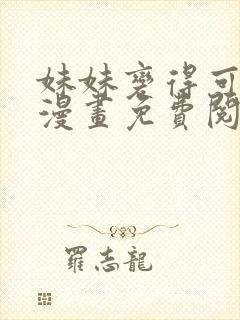 妹妹变得可
漫畫免費閱
羅志龍